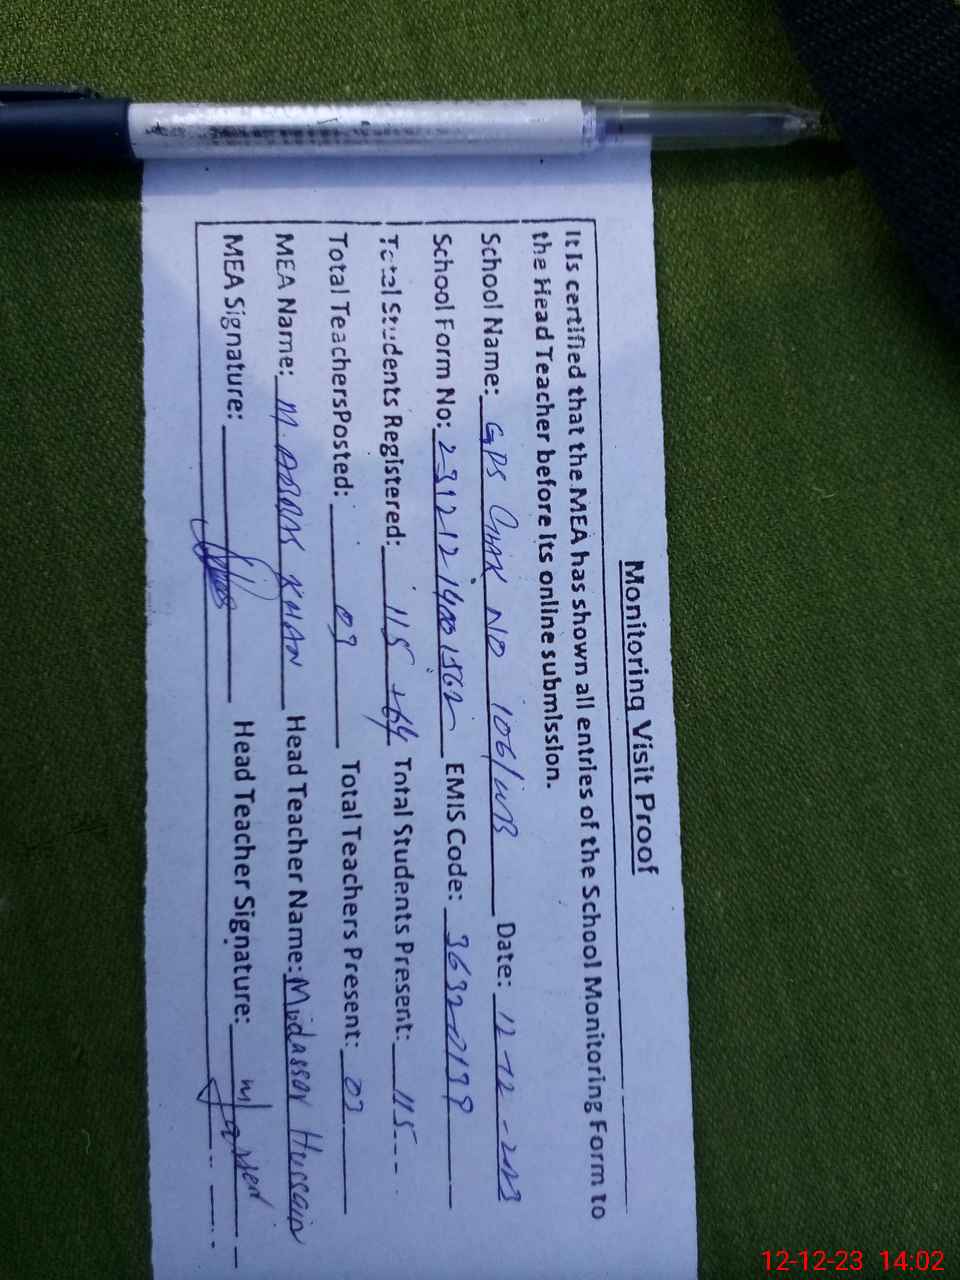 Monitoring Visit Proof
It Is certified that the MEA has shown all entries of the School Monitoring Form to
the Head Teacher before its online submission.
School Name: GPS Chak No 106/WB Date: 12-12-2023
School Form No: EMIS Code: 36320139
Total Students Registered: 115 Total Students Present: 115
Total TeachersPosted: 03 Total Teachers Present: 03
MEA Name: M. KHAN Head Teacher Name: Mudassar Hussain
MEA Signature: Head Teacher Signature:
12-12-23 14:02